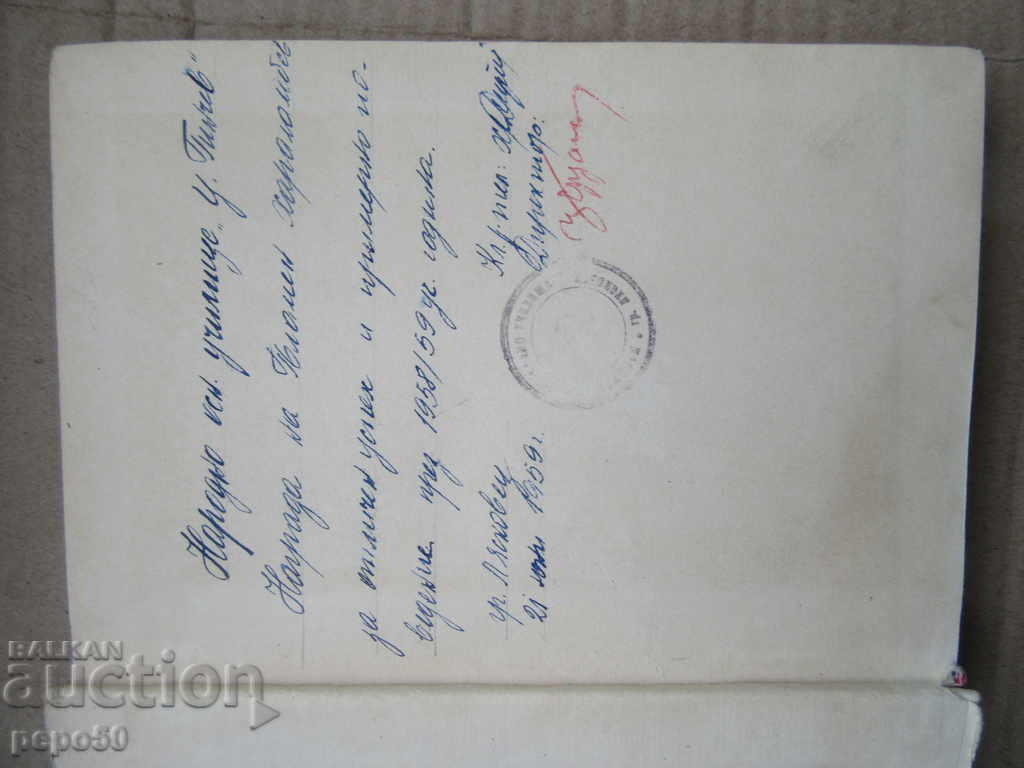 Народно осн. училище „Ц. Гинчев“
Награда на Пламен Хараломбев
за отличен успех и примерно по-
ведение през 1958/59 уч. година.
гр. Лясковец
21 юни 1959 г.
Кл. р-тел:
Директор:
BALKAN
auction
pepo50